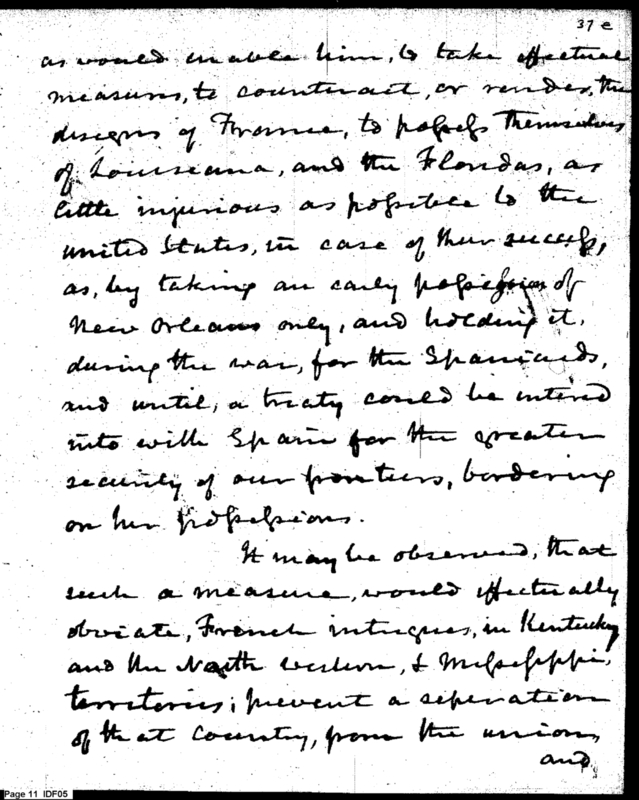 37 e
as would enable him, to take effectual
measures, to counteract, or render, the
designs of France, to possess themselves
of Louiseana, and the Floridas, as
little injurious as possible to the
united States, in case of their success,
as, by taking an early possession of
New Orleans only, and holding it,
during the war, for the Spaniards,
and until, a treaty could be intered
into with Spain for the greater
security of our frontiers, bordering
on her possessions.
It may be observed, that
such a measure, would effectually
obviate, French intrigues, in Kentucky
and the North western, & Mississippi,
territories; prevent a seperation
of that Country, from the union,
and
Page 11 IDF05